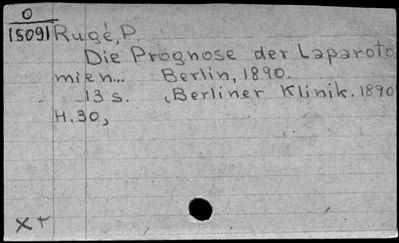 O
15091 Rugé, P.
Die Prognose der Laparoto
mien... Berlin, 1890.
13 s. (Berliner Klinik. 1890
H. 30,